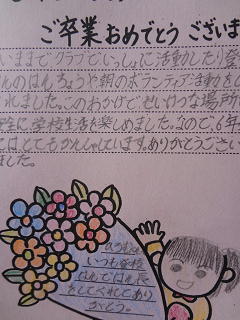 ご卒業おめでとうございま
いままで、クラブでいっしょに活動したり登
んのはんちょうや朝のボランティア活動をし
れました。このおかげできれいな場所
安全に学校生活を楽しめました。なので、6年
はとてもかんしゃしています。ありがとうござい
ました。
いつも学校
はんではん長
をしてくれてあり
がとう。